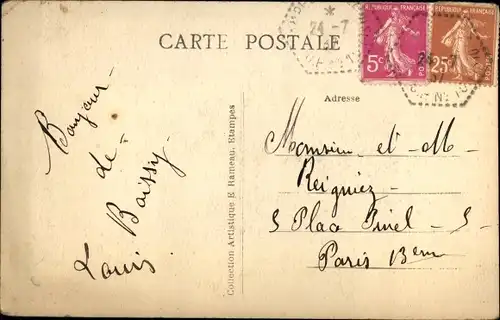 CARTE POSTALE
RÉPUBLIQUE FRANÇAISE
5c
POSTES
25c
24-7
Adresse
Bonjour
de
Boissy
Louis
Collection Artistique E Rameau, Etampes
Monsieur et M
Reigniez
5 Place Pinel 5
Paris 13em